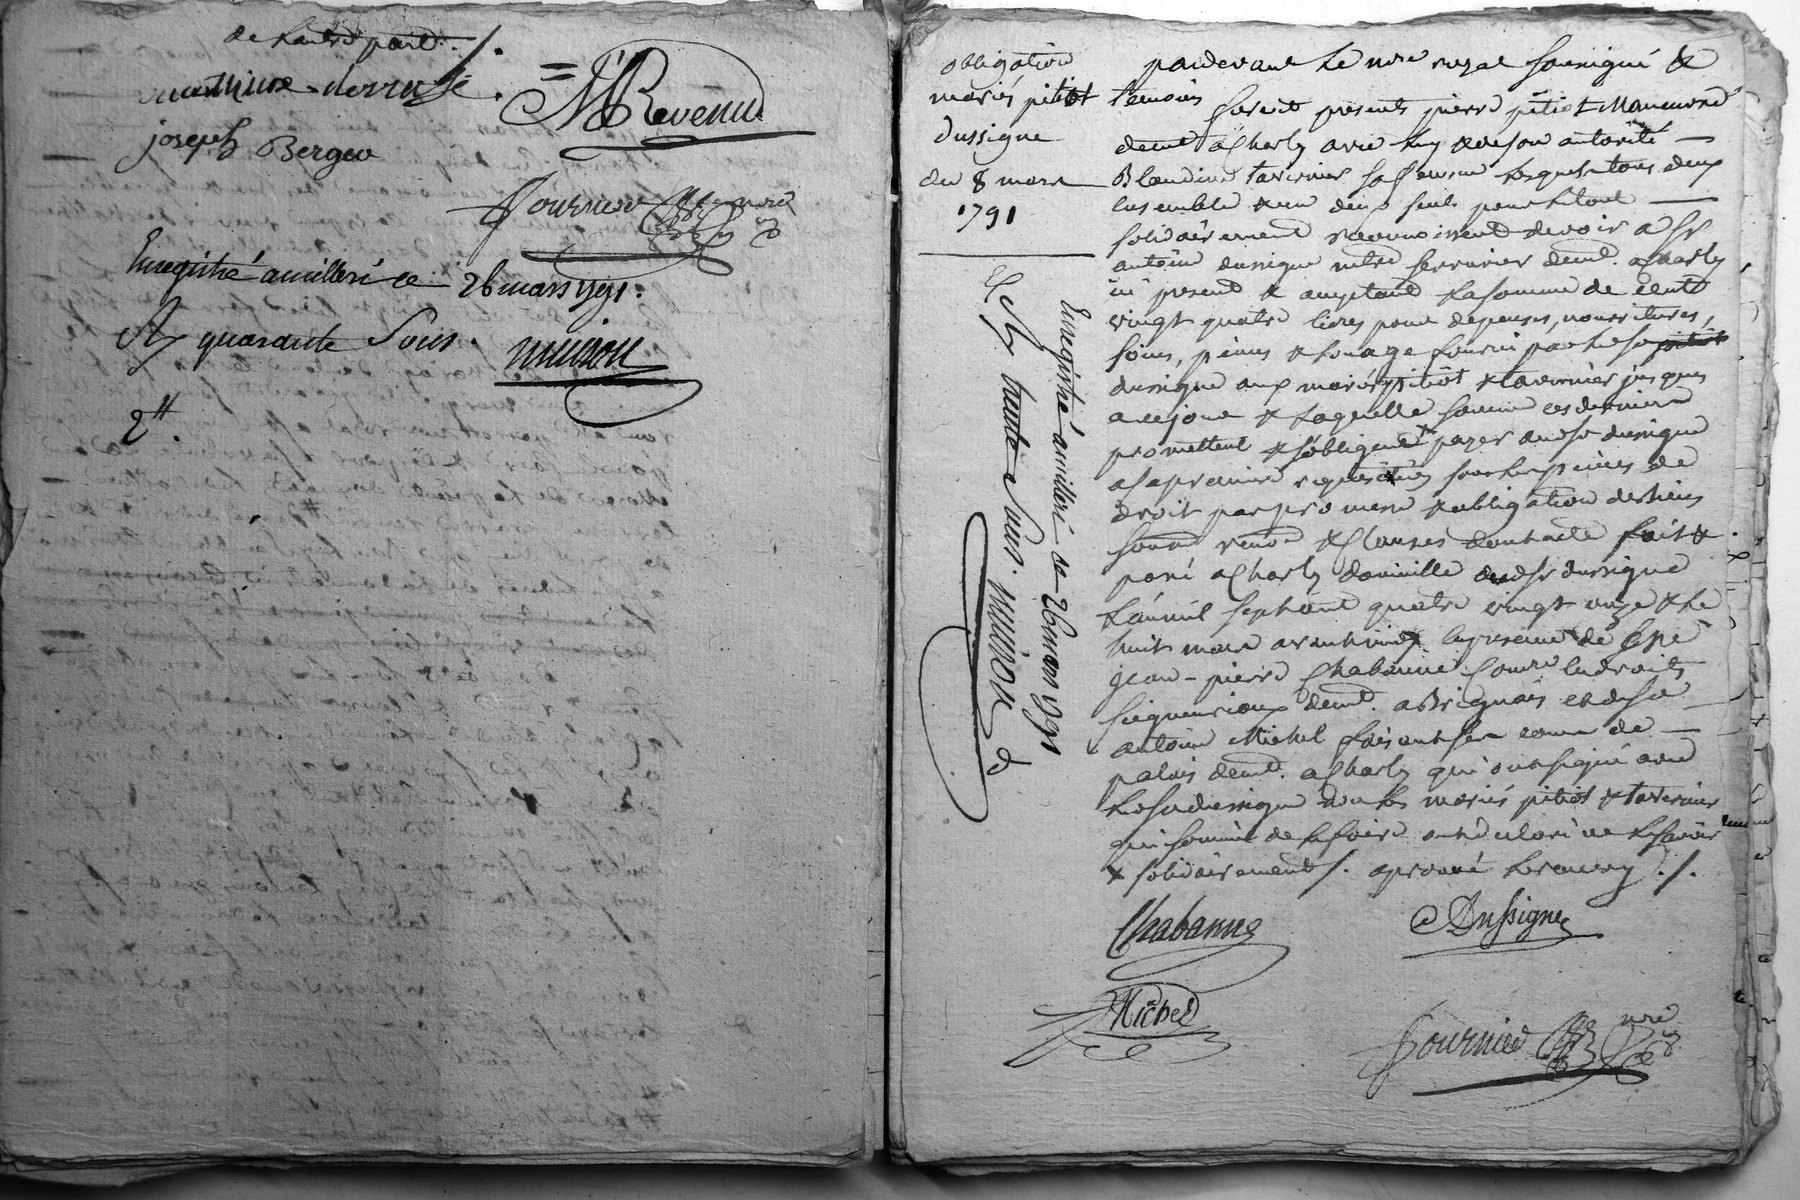 de Lautre part ./.
joseph Berger
= M Revenu
fournier nre
Enregistré a milleri ce 26 mars 1791.
R quarante Sous.
muison
2#.
obligation
mariés pitiot
Dussigne
du 8 mars
1791
Enregistré a milleri ce 26 mars 1791
R trente Sous. muison
pardevant Le nre royal soussigné &
temoins
furent presents pierre pitiot Manuvre
demt a Charly avec luy & de son autorité
Blandine tavernier sa femme Lesquels tous deux
ensemble & un deux seuls pour le tout
solidairement reconnoissent devoir a Sr
antoine dussigne mtre serrurier demt. a Charly
ici present & acceptant La somme de cent
vingt quatre livres pour depenses, nourritures,
soins, peines & louage fourni par Le sr pitiot
dussigne aux mariés pitiot & tavernier jusques
a ce jour & Laquelle somme ces derniers
promettent & s'obligent payer audt sr dussigne
a sa premiere requisition sous Les peines de
droit par promesse & obligation de biens
soumon renon & Clauses dont acte fait &
passé a Charly domicille dudt sr dussigne
L'an mil sept cent quatre vingt onze & Le
huit mars avant midy en presence de sr
jean-pierre Chabanne Commre en droits
seigneuriaux demt. a Brignais et de sr
antoine Michel faisant sa cour de
palais demt. a Charly qui ont signé avec
Le sr dussigne non les mariés pitiot & tavernier
qui sommés de le faire ont declaré ne Le savoir
x solidairement /. aprouvé Le renvoy ./.
Chabanne
Dussigne
Michel
fournier nre